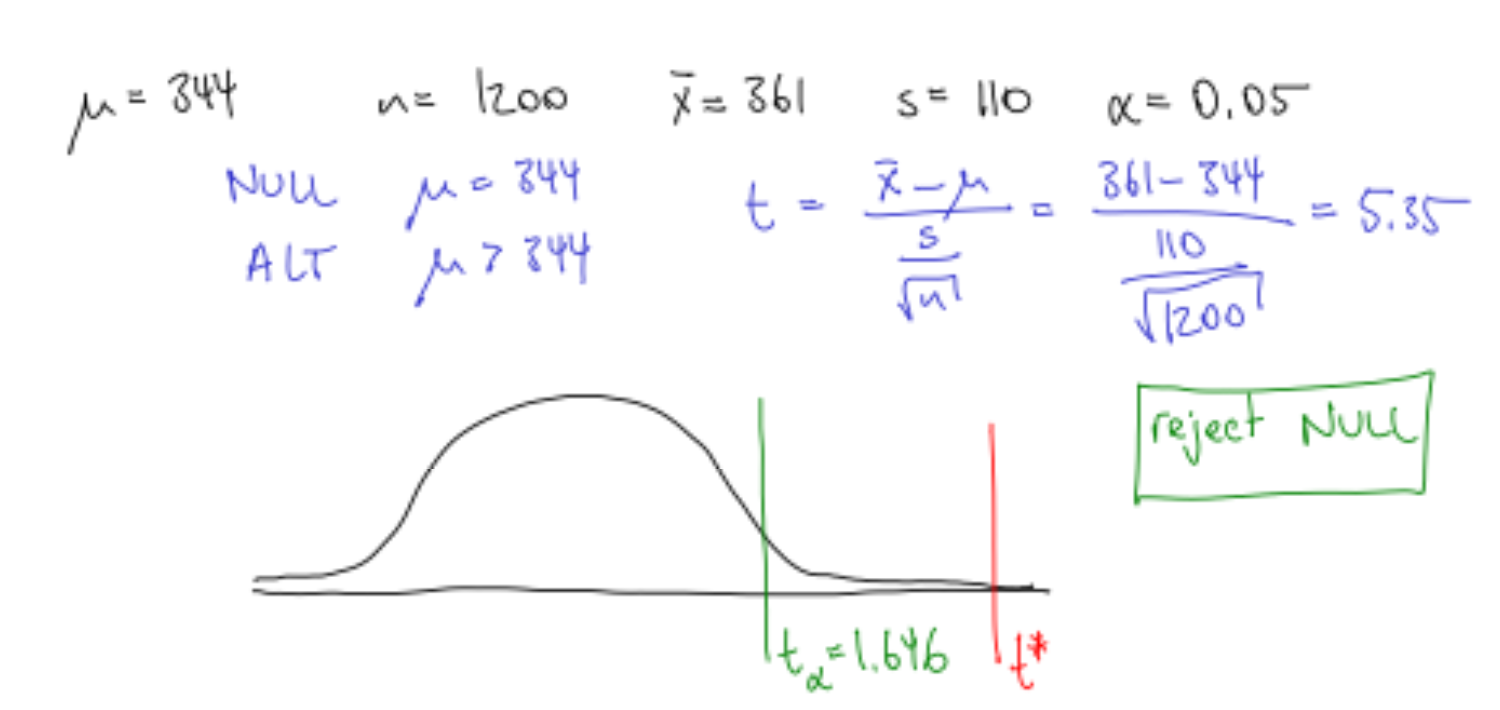 μ = 344 n = 1200 x̄ = 361 s = 110 α = 0.05
NULL μ = 344
ALT μ > 344
t = (x̄ - μ) / (s / √n) = (361 - 344) / (110 / √1200) = 5.35
reject NULL
t_α = 1.646 t*